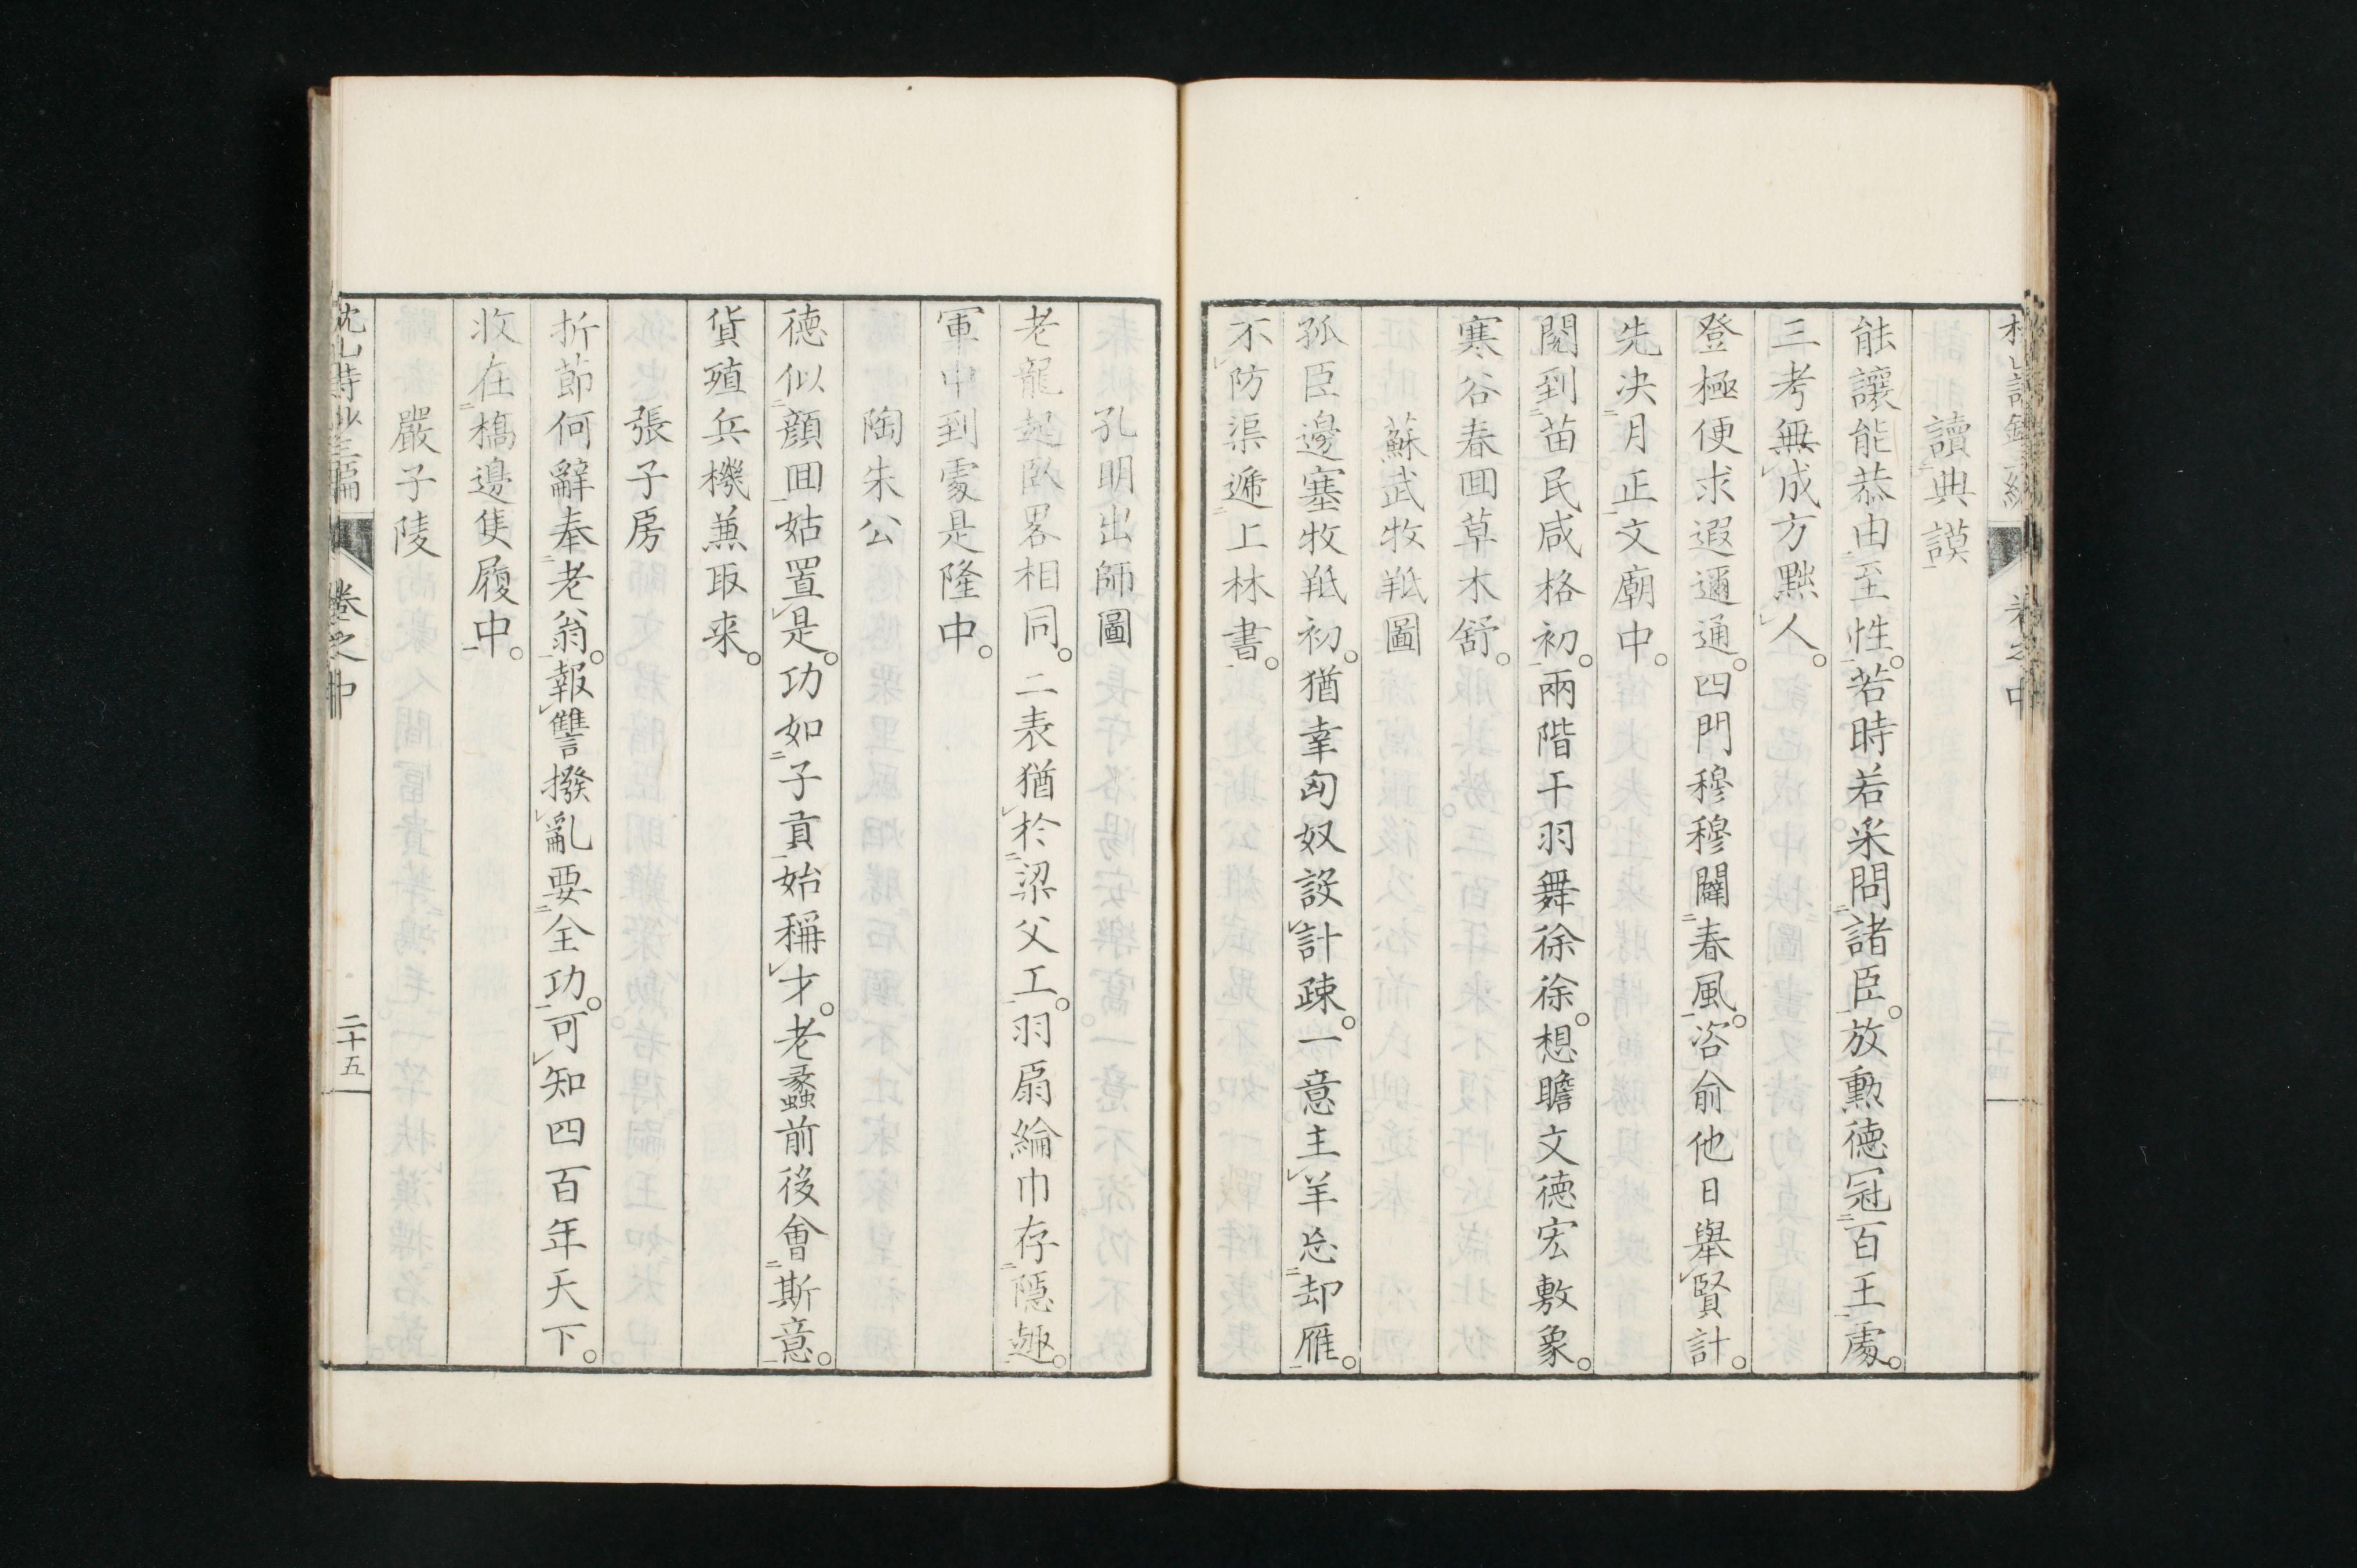 讀典謨
能讓能恭由至性。若時若采問諸臣。放勲德冠百王處。
三考無成方黜人。
登極便求遐邇通。四門穆穆闢春風。咨俞他日舉賢計。
先决月正文廟中。
閲到苗民咸格初。兩階干羽舞徐徐。想瞻文德宏敷象。
寒谷春回草木舒。
蘇武牧羝圖
孤臣邊塞牧羝初。猶幸匈奴設計疎。一意主羊忘却雁。
不防渠遞上林書。
卷之中
孔明出師圖
老龍起臥畧相同。二表猶於梁父工。羽扇綸巾存隱趣。
軍中到處是隆中。
陶朱公
德似顔回姑置是。功如子貢始稱才。老蠡前後會斯意。
貨殖兵機兼取来。
張子房
折節何辭奉老翁。報讐撥亂要全功。可知四百年天下。
收在橋邊隻履中。
嚴子陵
卷之中
二十五